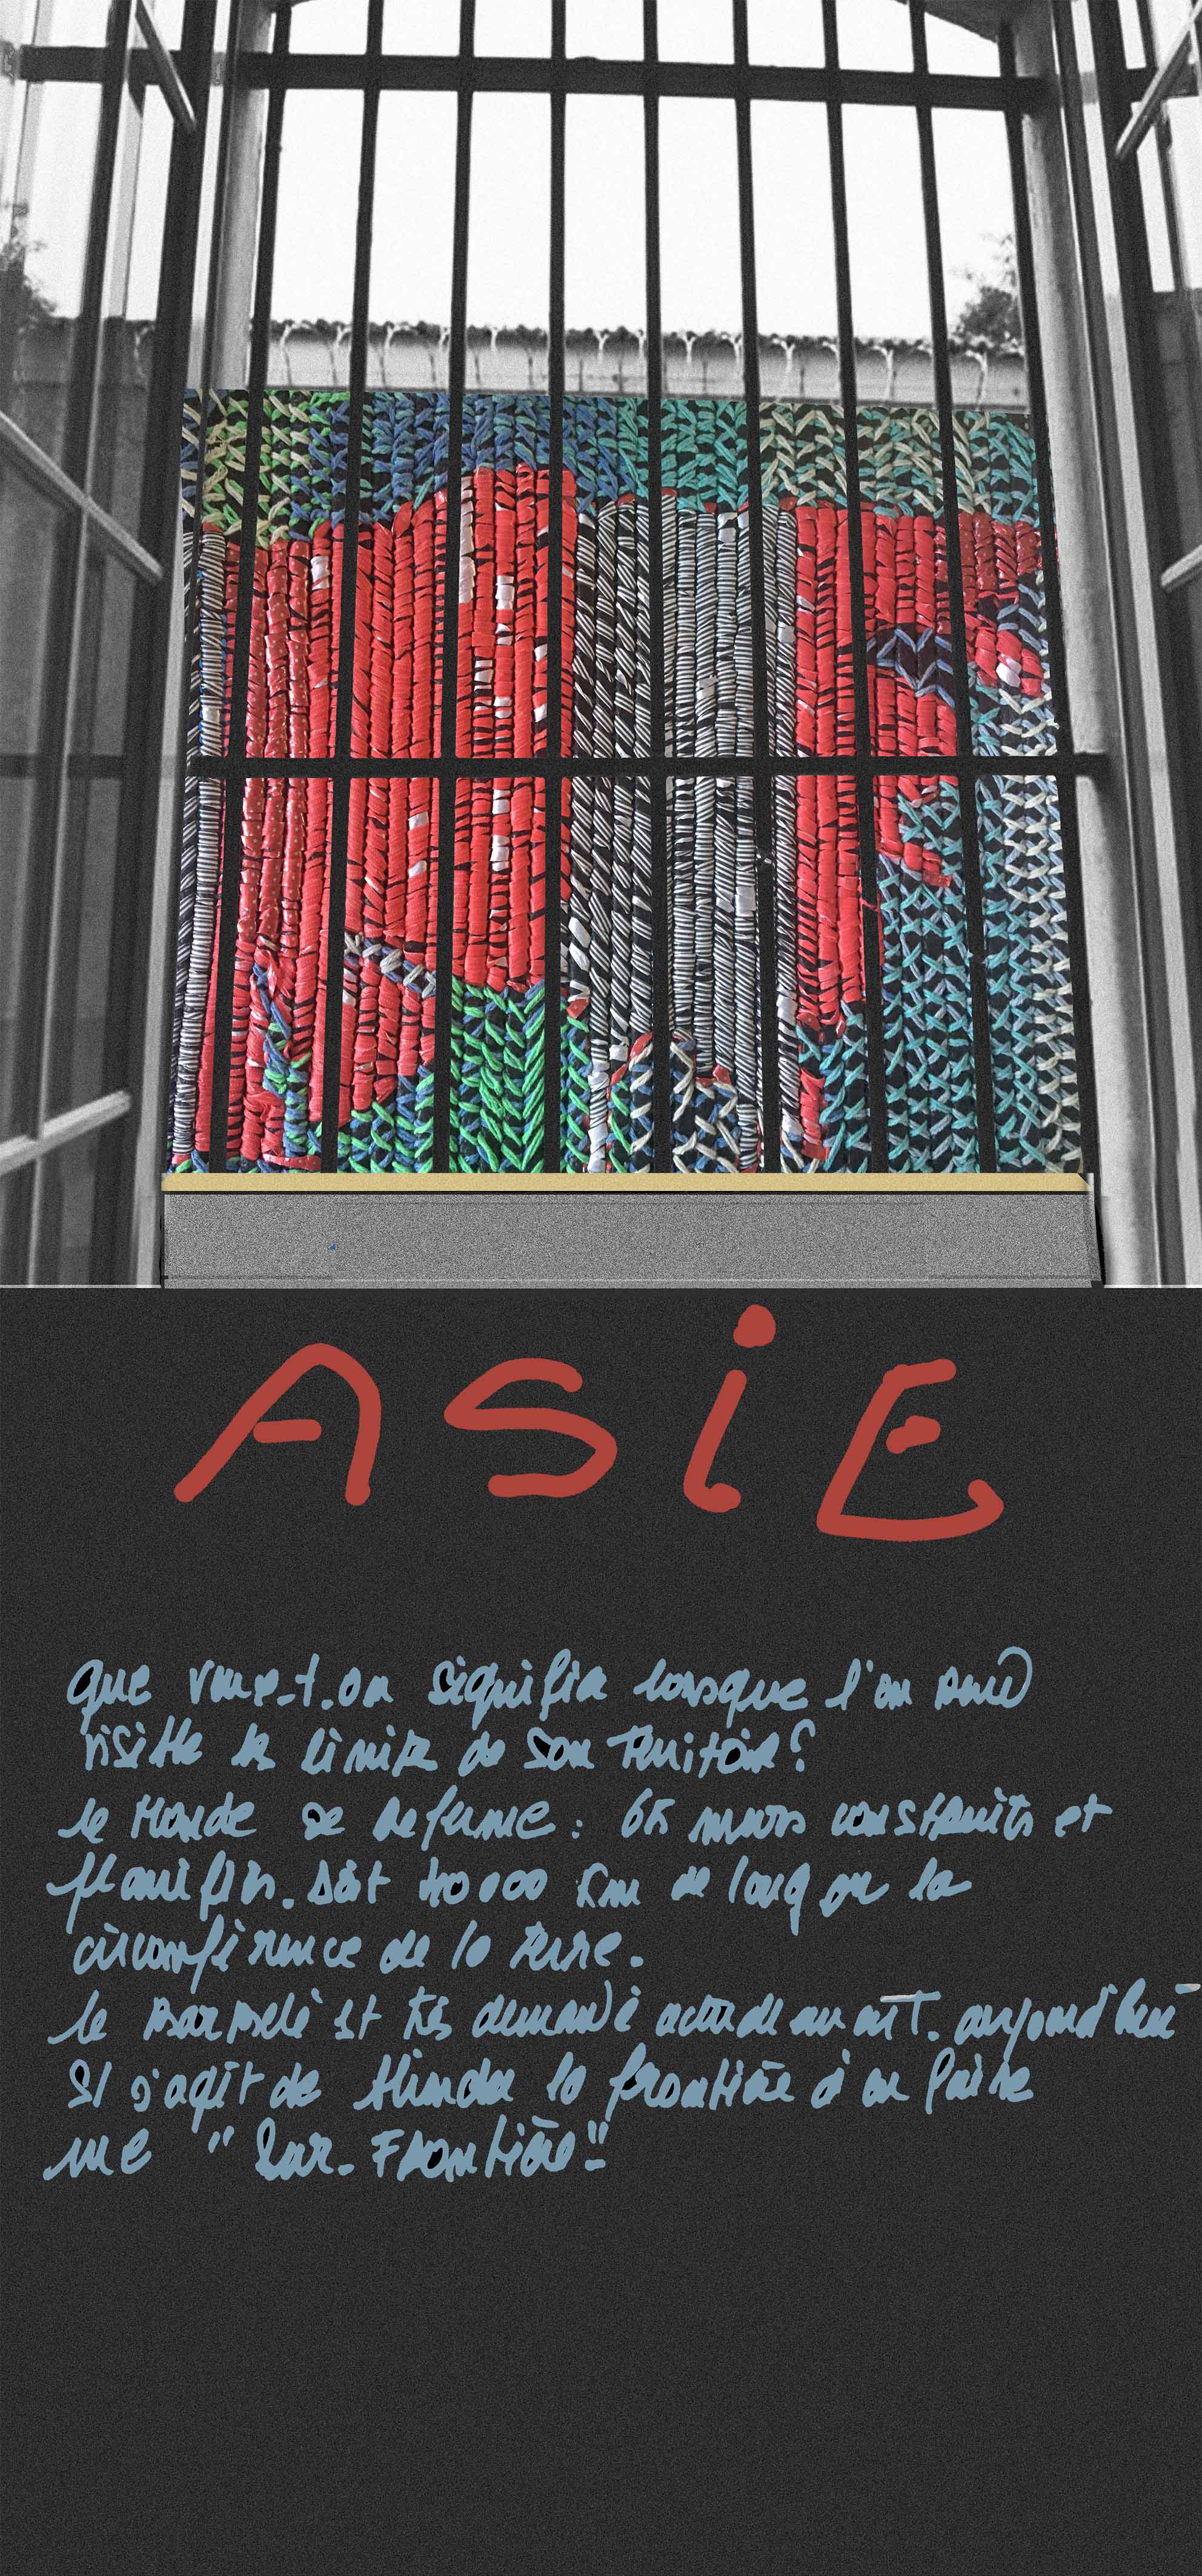 ASiE
Que veut-on signifier lorsque l'on rend
visible la limite de son territoire?
le Monde se referme : 65 murs construits et
planifiés. soit 40 000 km de long ou la
circonférence de la terre.
le barbelé est très demandé actuellement. aujourd'hui
il s'agit de la frontière d'en faire
une "Sur-Frontière"